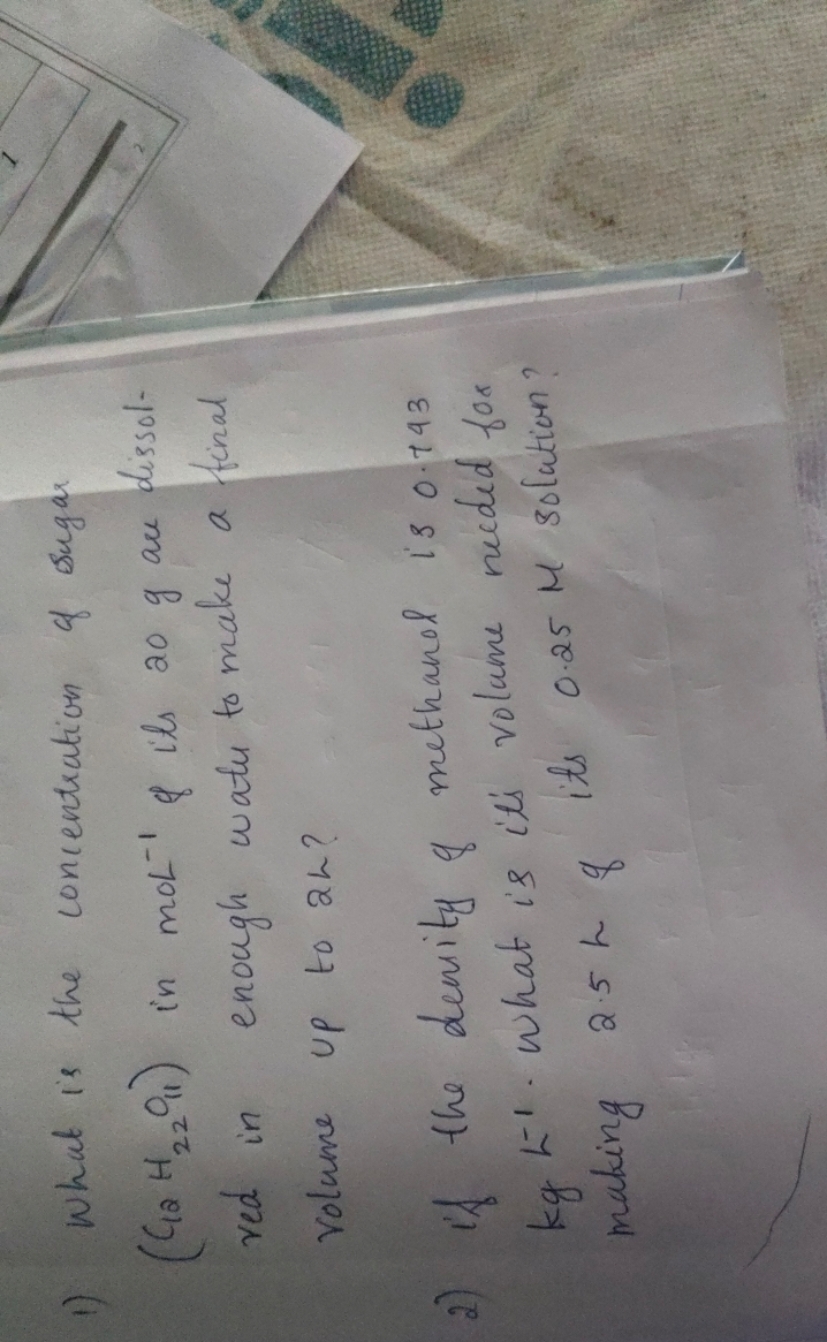 1) What is the concentration of sugar
(C12 H22 O11) in mol L-1 if its 20 g are dissol-
ved in enough water to make a final
volume up to 2L?
2) if the density of methanol is 0.793
kg L-1. what is its volume needed for
making 2.5 L of its 0.25 M solution?
1
2